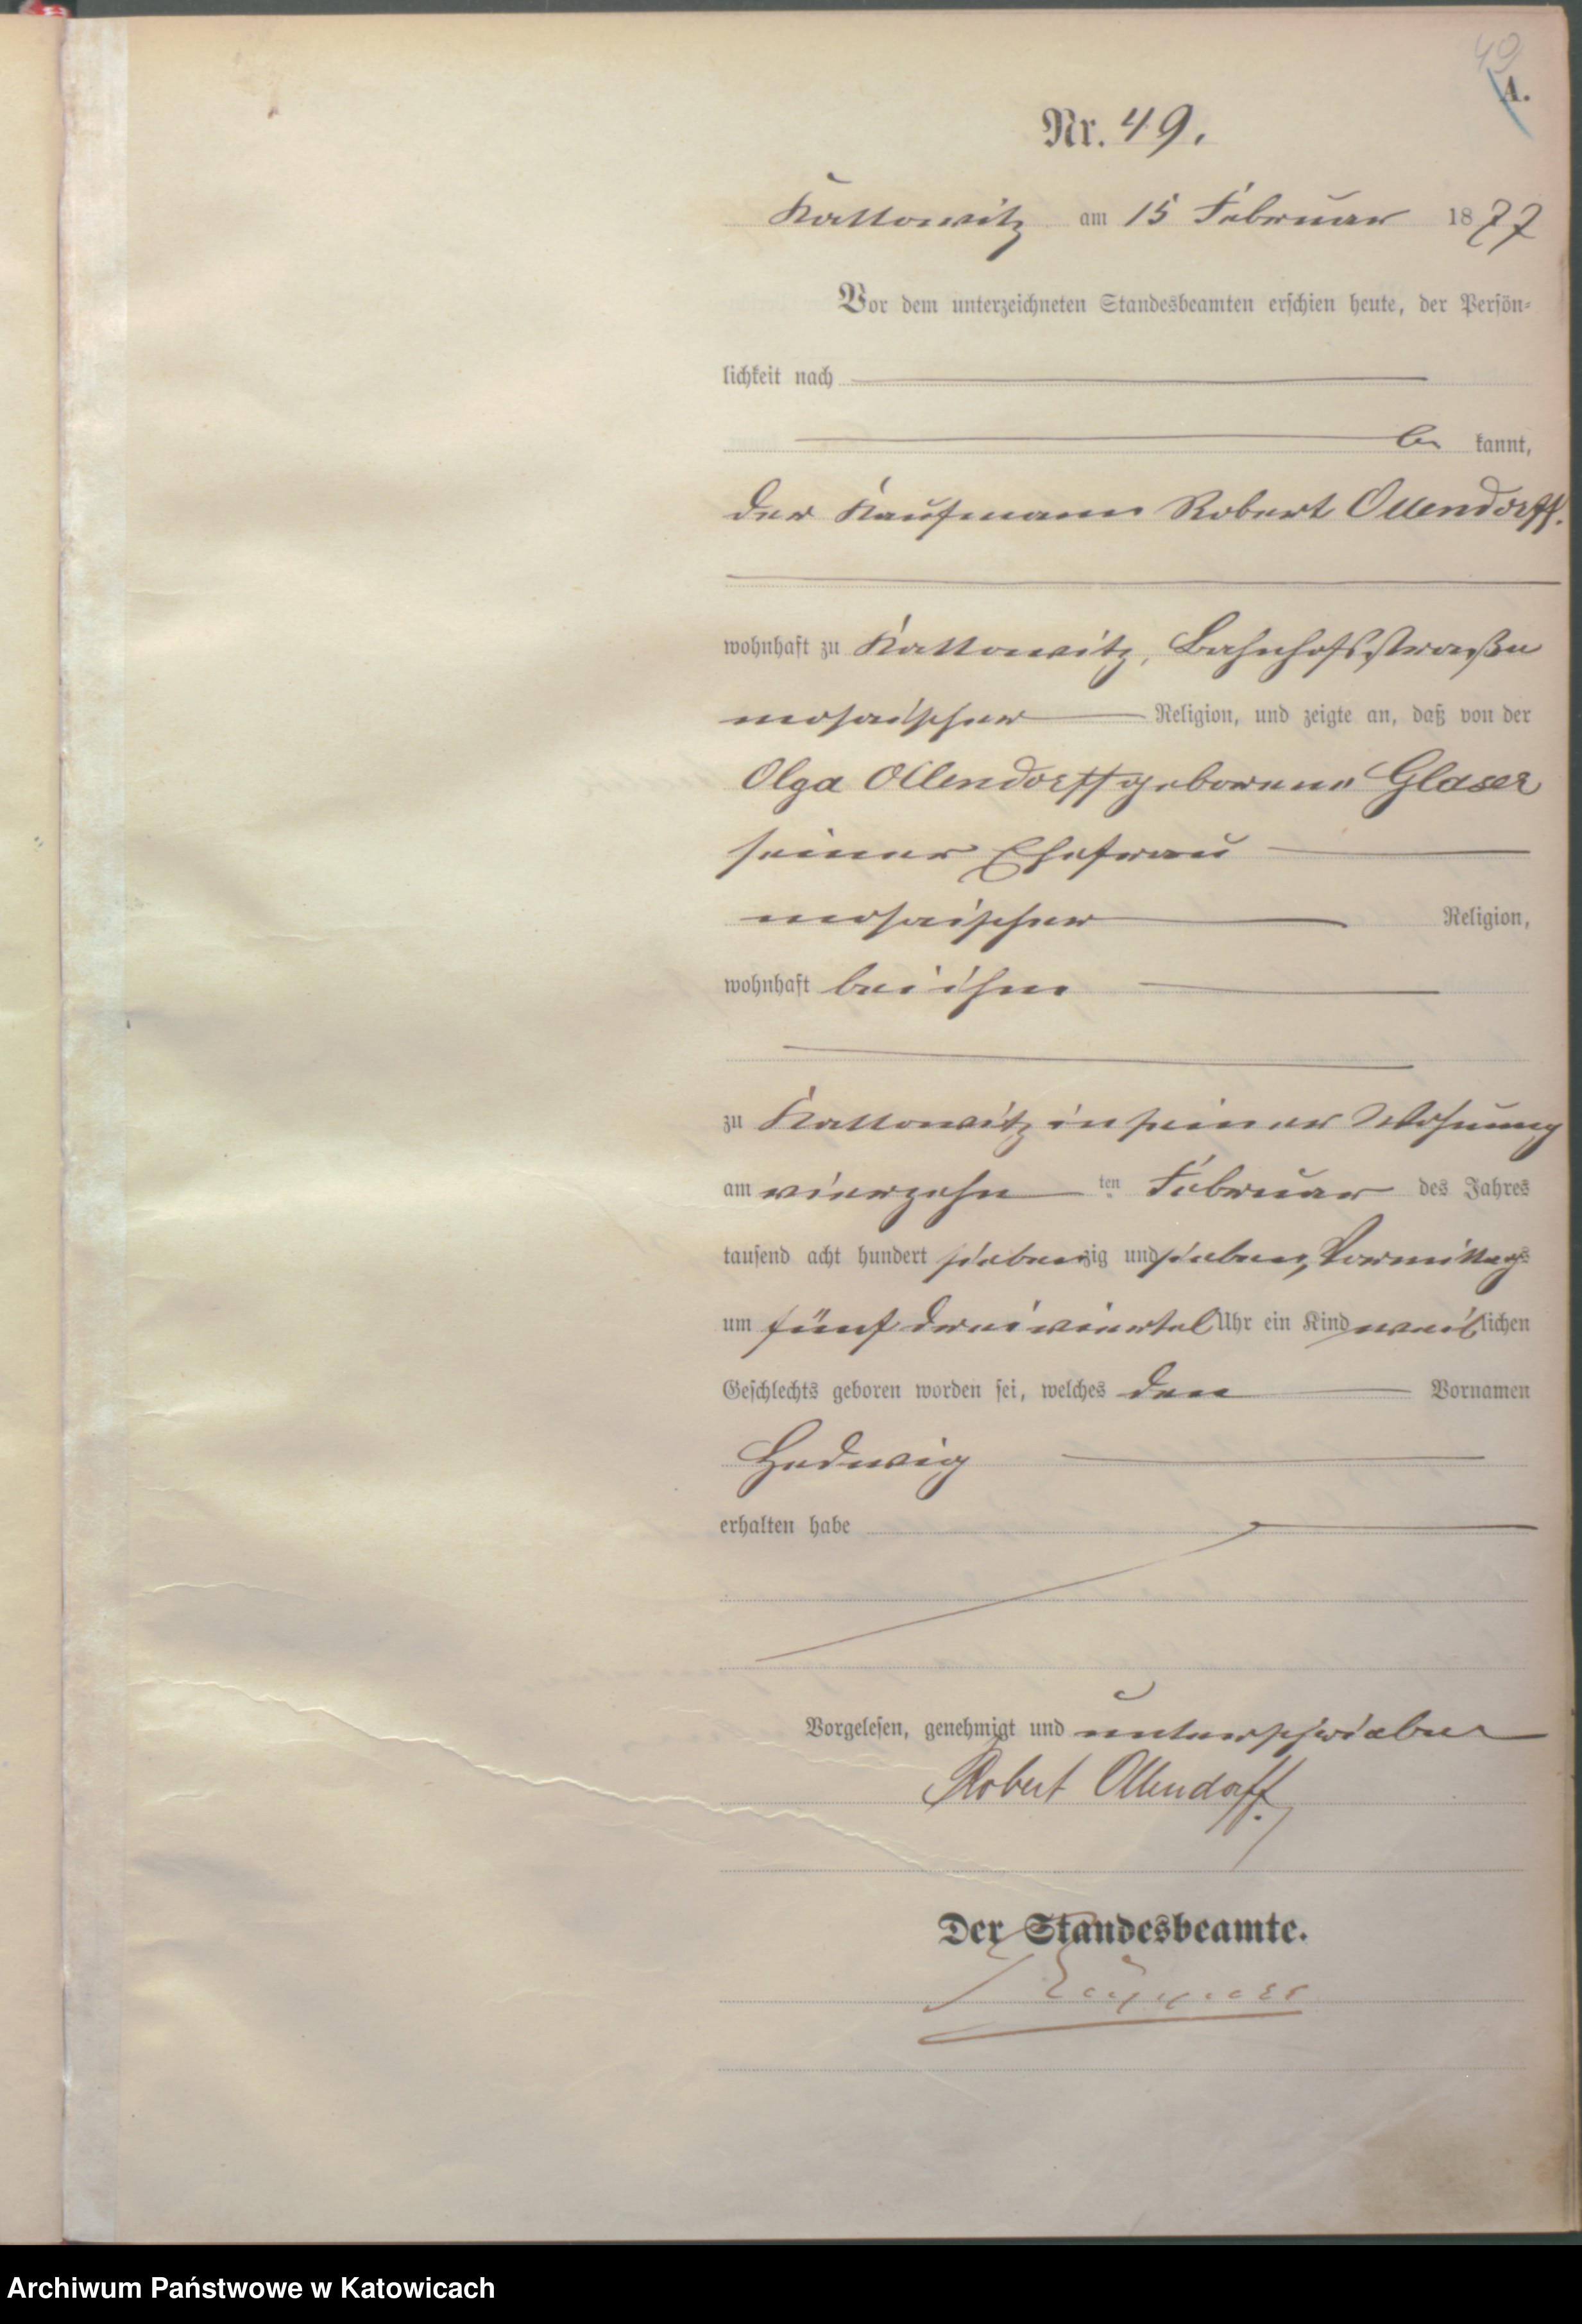 49
A.
Nr. 49.
Kattowitz am 15 Februar 1877
Vor dem unterzeichneten Standesbeamten erschien heute, der Persön-
lichkeit nach
be kannt,
der Kaufmann Robert Ollendorff.
wohnhaft zu Kattowitz, Bahnhofsstraße
mosaischer Religion, und zeigte an, daß von der
Olga Ollendorff geborene Glaser
seiner Ehefrau
mosaischer Religion,
wohnhaft bei ihm
zu Kattowitz in seiner Wohnung
am vierzehn ten Februar des Jahres
tausend acht hundert siebenzig und sieben, Vormittags
um fünf dreiviertel Uhr ein Kind weiblichen
Geschlechts geboren worden sei, welches den Vornamen
Hedwig
erhalten habe
Vorgelesen, genehmigt und unterschrieben
Robert Ollendorff.
Der Standesbeamte.
Archiwum Państwowe w Katowicach